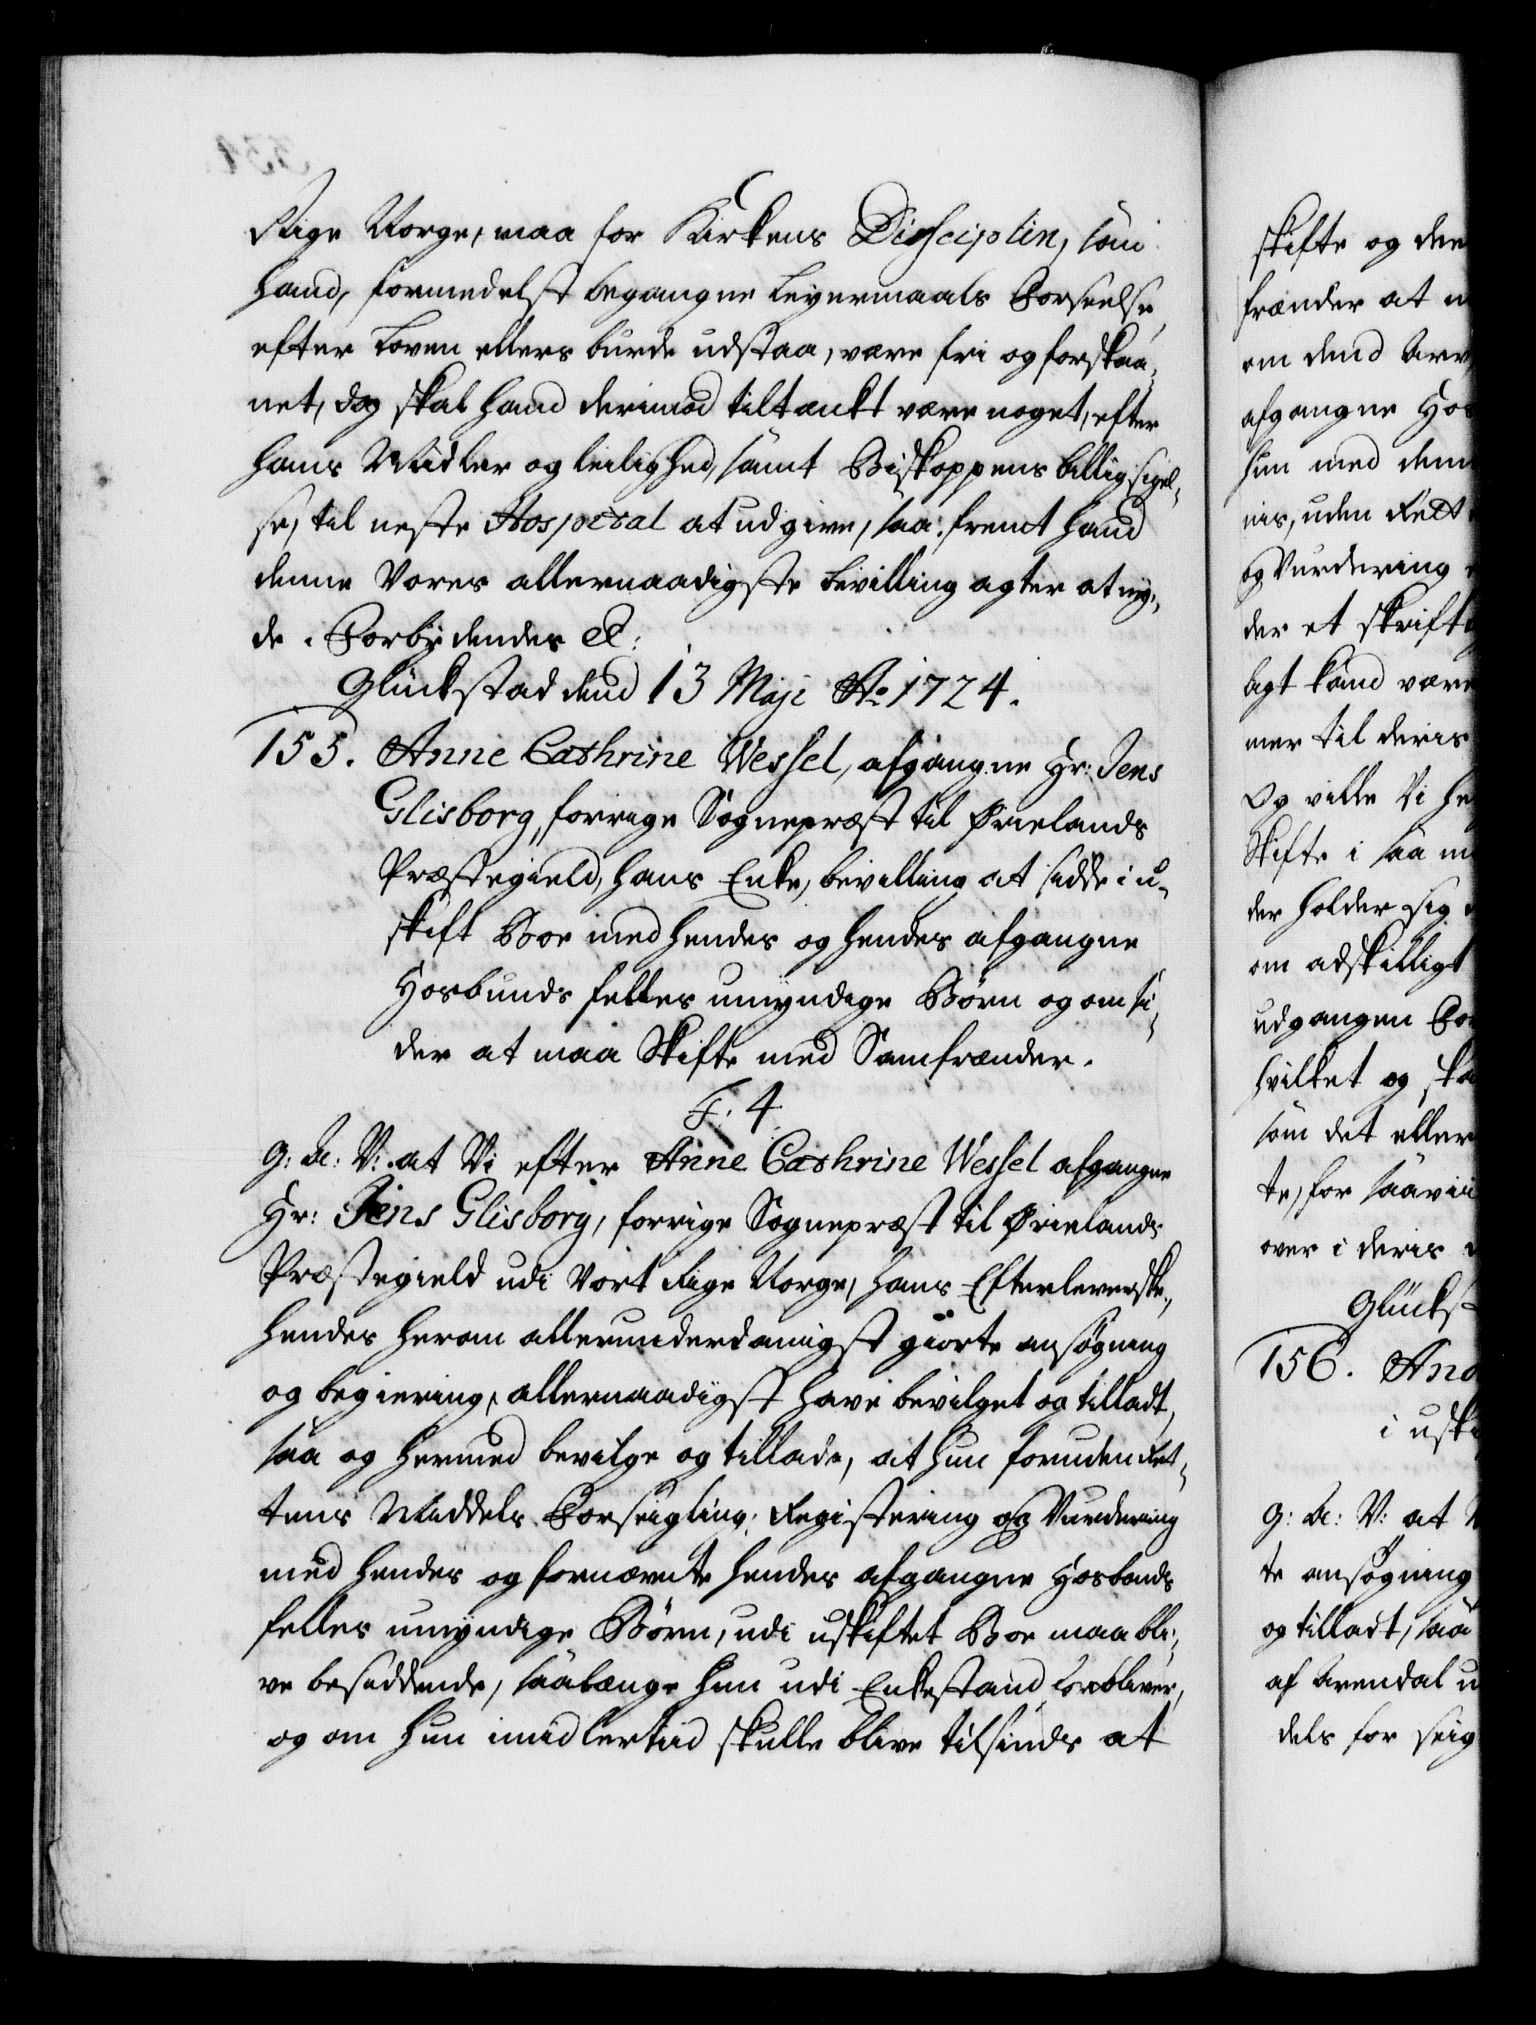 Rige Norge, maa for Kirkens Dissciplin, som
hand, formedelst begangne Leyermaals Forseelse,
efter Loven ellers burde udstaa, være fri og forskaa-
net, dog skal hand derimod tiltænkt være noget, efter
hans Midler og leilighed, samt Biskoppens billig sigel-
se, til neste Hospital at udgive, saa fremt hand
denne Vores allernaadigste bevilling agter at ny-
de. Forbydendes etc:
Glückstad dend 13 Maji Ao 1724.
155. Anne Cathrine Wessel, afgangne Hr: Jens
Glisborg, forrige Sognepræst til Ørelands
Præstegield, hans Enke, bevilling at sidde i u-
skift Boe med hendes og hendes afgangne
Hosbunds felles umyndige Børn og om si-
der at maa Skifte med Samfrænder.
F. 4.
G: A: V: at Vi efter Anne Cathrine Wessel afgangne
Hr: Jens Glisborg, forrige Sognepræst til Ørelands
Præstegield udi Vort Rige Norge, hans Efterleverske,
hendes herom allerunderdanigst giorte ansøgning
og begiering, allernaadigst have bevilget og tilladt,
saa og hermed bevilge og tillade, at hun foruden Ret-
tens Middels Forseigling, Registering og Vurdering
med hendes og fornævnte hendes afgangne Hosbonds
felles umyndige Børn, udi uskiftet Boe maa bli-
ve besiddende, saalænge hun udi Enkestand forbliver,
og om hun imidlertiid skulle blive tilsinds at
skifte og dee
frænder at
om dend Arv
afgangne Hos
hun med dem
nis, uden Rett
og Vurdering
der et skrift
lagt kand være
mer til deris
Og ville Vi he
Skifte i saa m
der holder sig
om adskilligt
udgangen For
hvilket og ska
som det eller
te, for saavii
over i deris
Glückst
156. And
i uski
G: A: V: at
te ansøgning
og tilladt, saa
af Arendal u
dels for seig